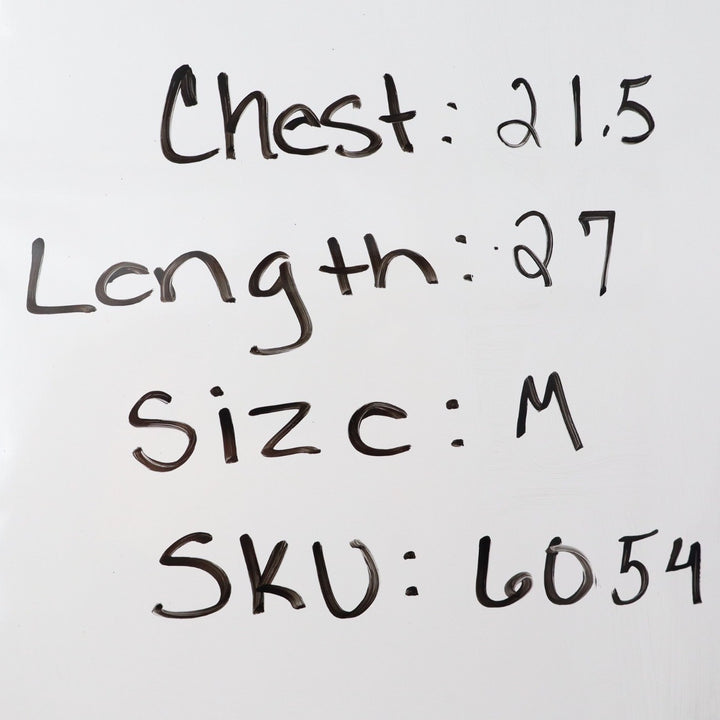 Chest: 21.5
Length: 27
Size: M
SKU: 6054